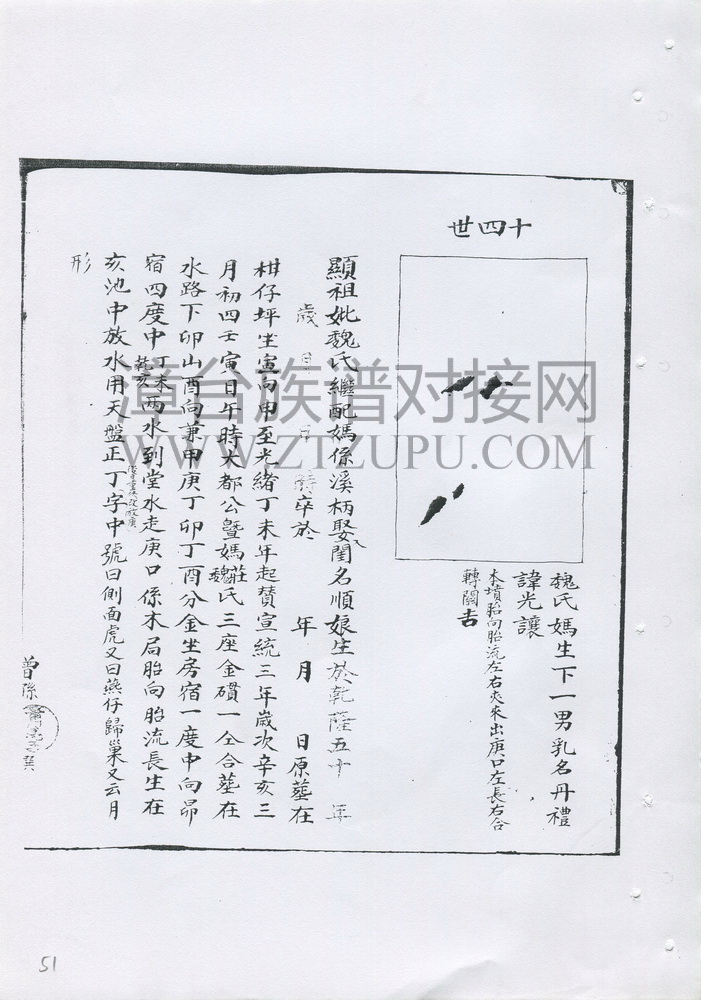 十四世
魏氏媽生下一男乳名丹禮
諱光讓
本墳胎向胎流左右夾來出庚口左長右合
轉關吉
顯祖妣魏氏繼配媽係溪柄娶閨名順娘生於乾隆五十 年
歲 月 卒於 年 月 日原塟在
柑仔坪坐寅向申至光緒丁未年起賛宣統三年歲次辛亥三
月初四壬寅日午時大都公曁媽莊魏氏三座金礩一仝合塟在
水路下卯山酉向兼甲庚丁卯丁酉分金坐房宿一度中向昴
宿四度中丁未乾亥兩水到堂水走庚口係木局胎向胎流長生在
亥池中放水用天盤正丁字中號曰側面虎又曰燕仔歸巢又云月
形
曾孫
漳台族谱对接网
WWW.ZTZUPU.COM
51